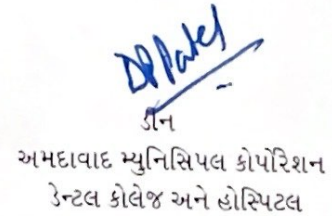 DPPatel
ડીન
અમદાવાદ મ્યુનિસિપલ કોર્પોરેશન
ડેન્ટલ કોલેજ અને હોસ્પિટલ